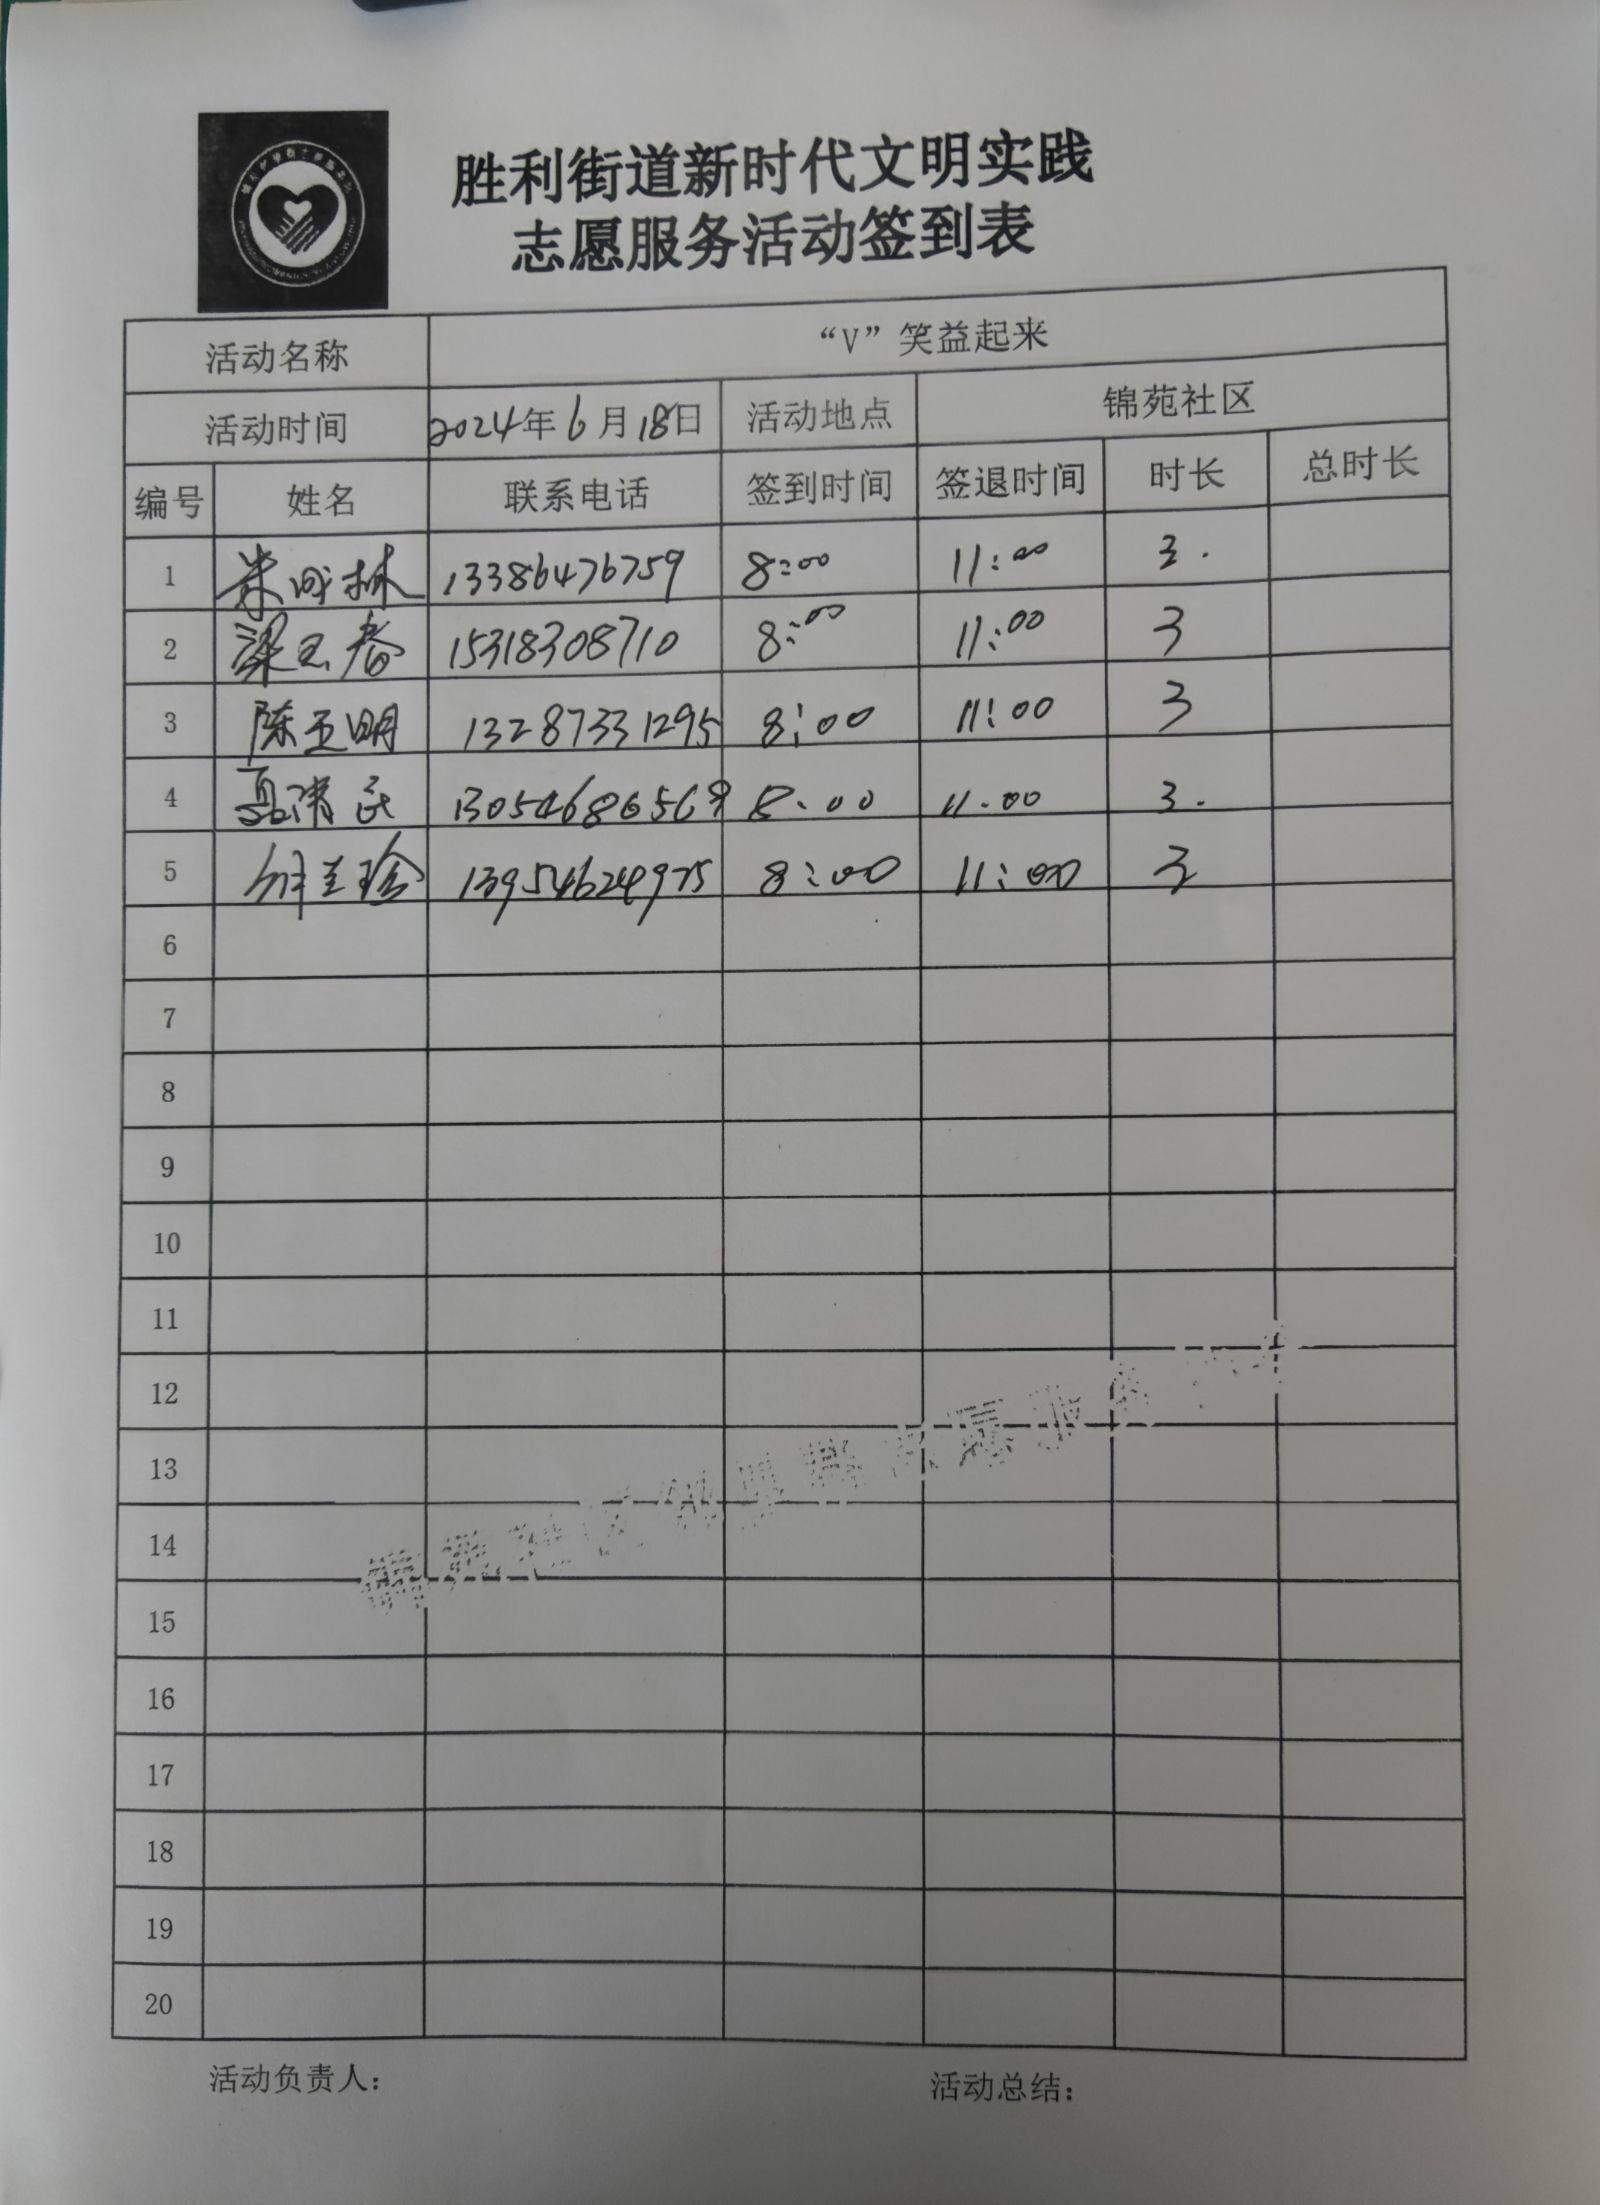 胜利街道新时代文明实践
志愿服务活动签到表
活动名称 “V”笑益起来
活动时间 2024年6月18日 活动地点 锦苑社区
编号 姓名 联系电话 签到时间 签退时间 时长 总时长
1 13386476759 8:00 11:00 3.
2 梁玉春 15318308710 8:00 11:00 3
3 陈玉明 13287331295 8:00 11:00 3
4 聂清民 8:00 11:00 3.
5 13954624975 8:00 11:00 3
6
7
8
9
10
11
12
13
14
15
16
17
18
19
20
活动负责人: 活动总结: